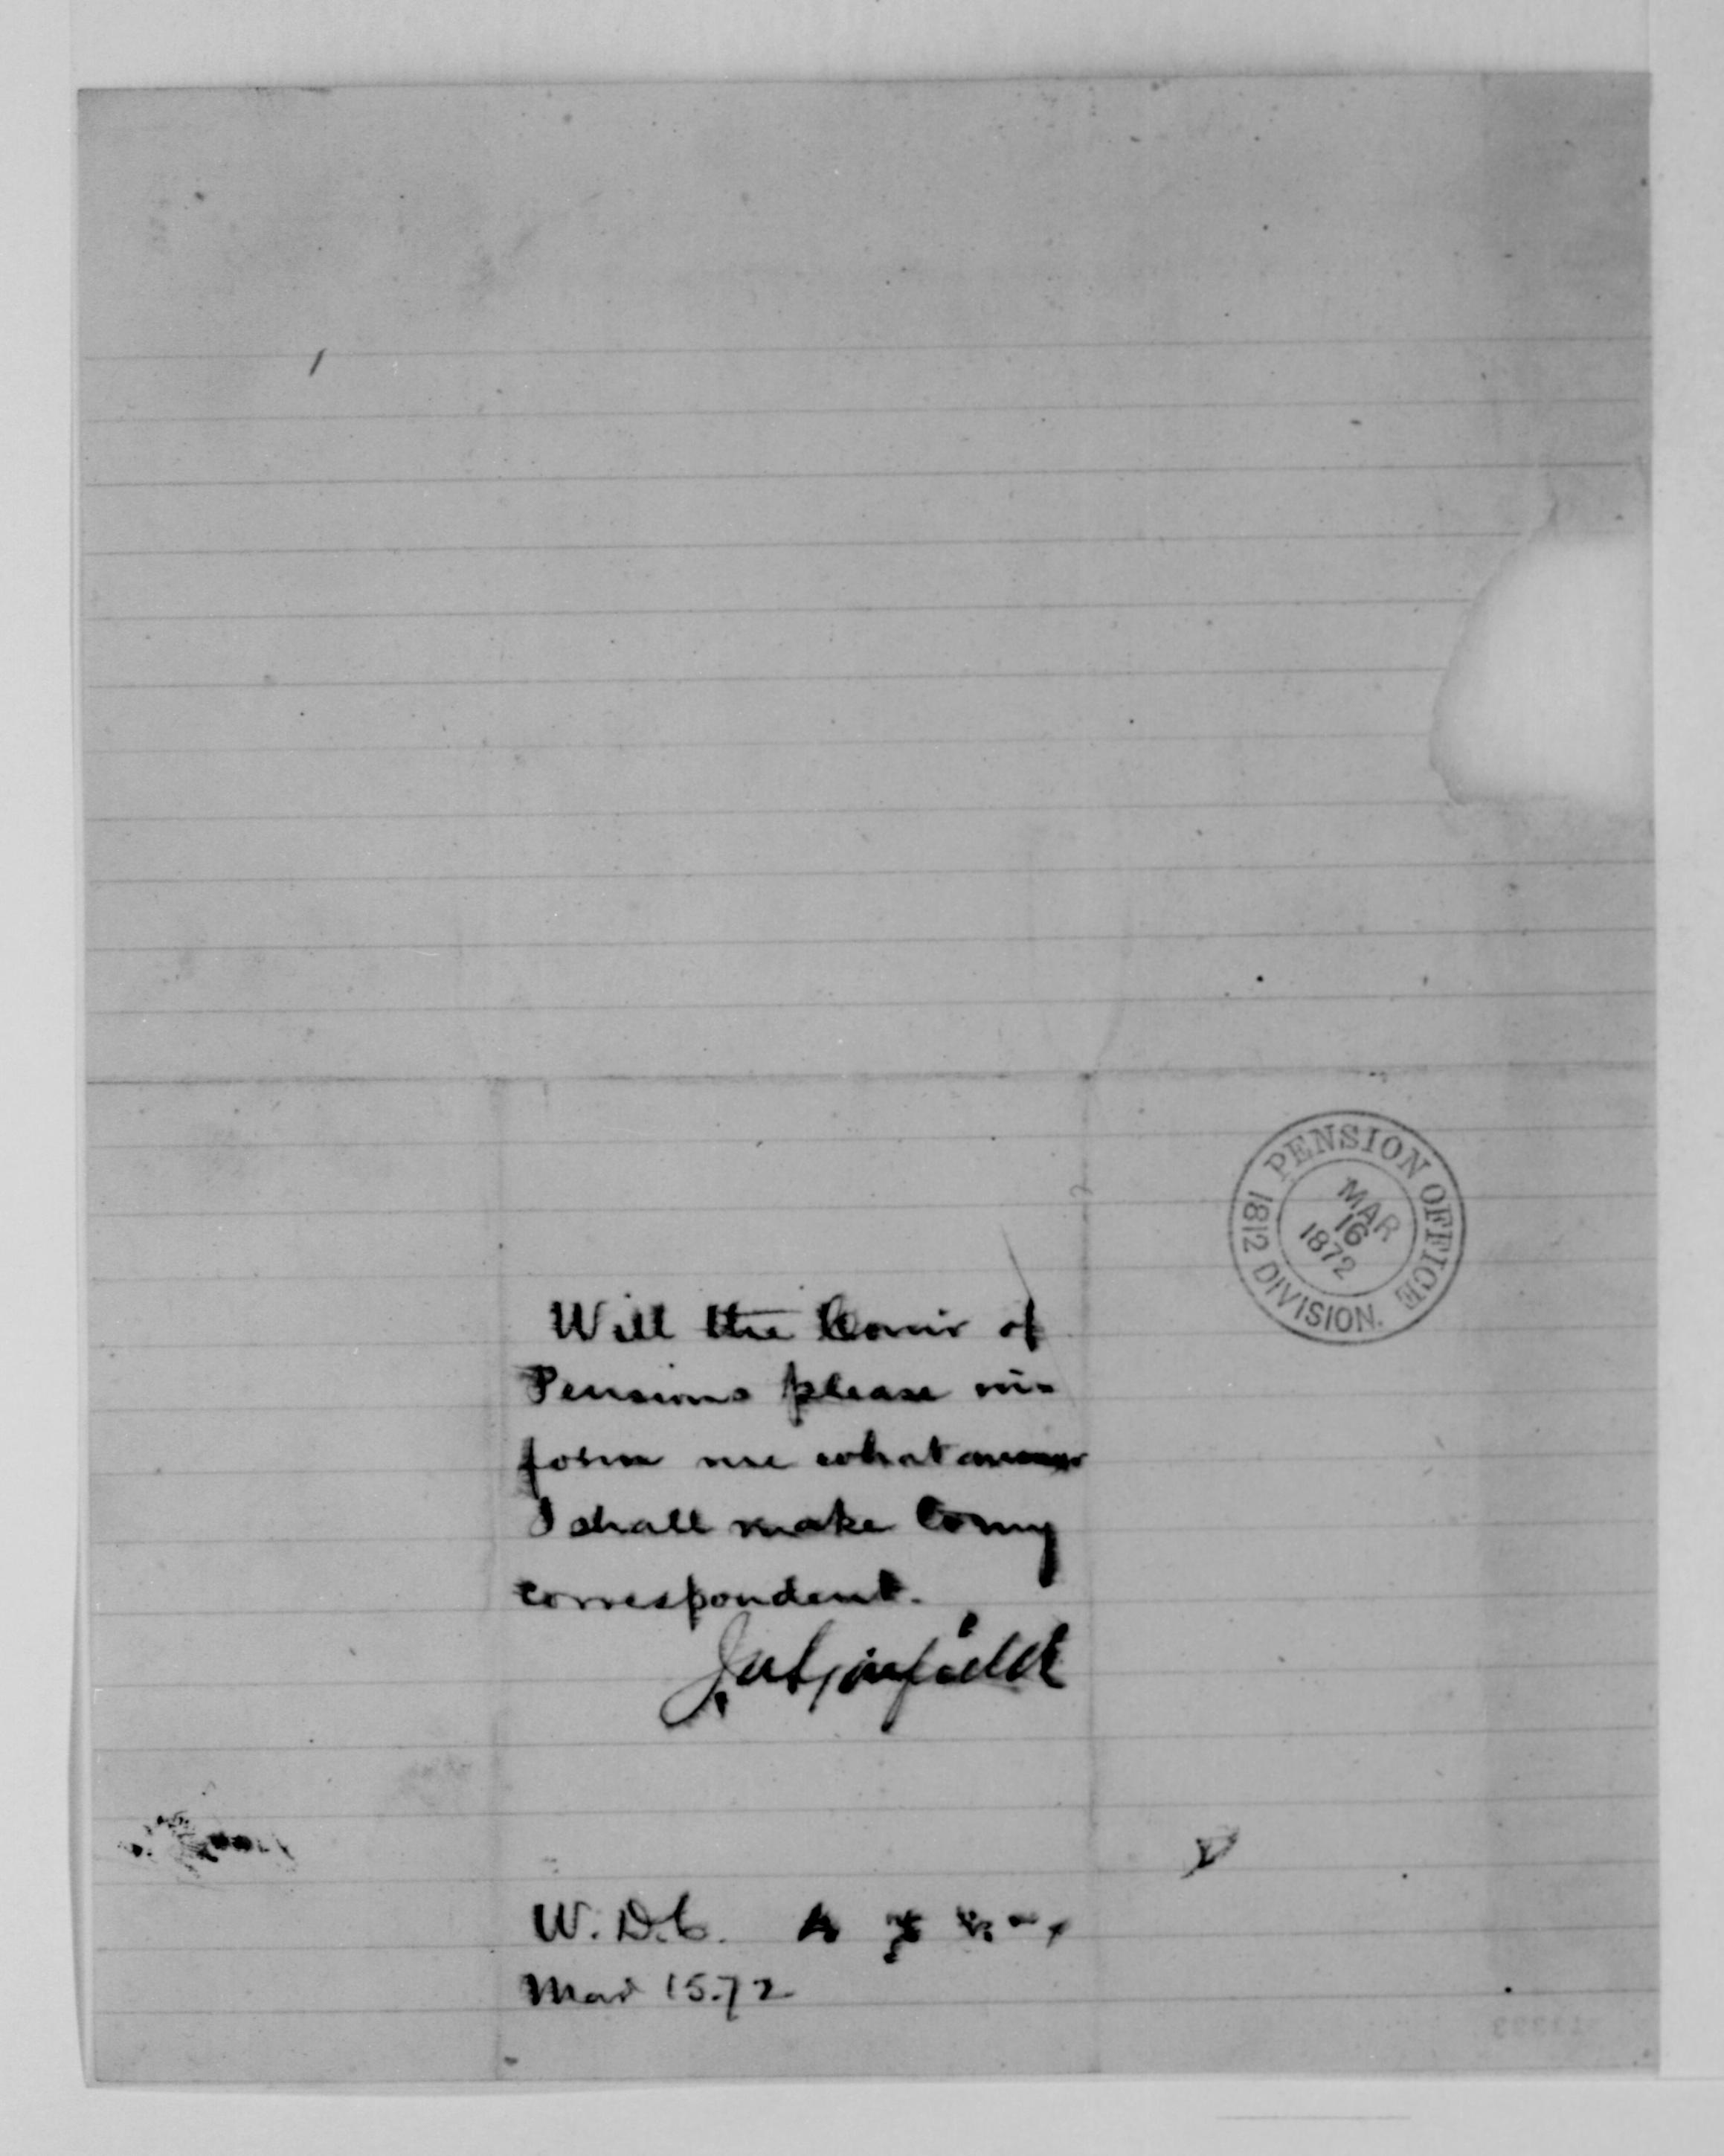 PENSION OFFICE
MAR
16
1872
1812 DIVISION.
Will the Comr of
Pensions please in-
form me what answer
I shall make to my
correspondent.
J. A. Garfield
W. D. C.
Mar 15. 72